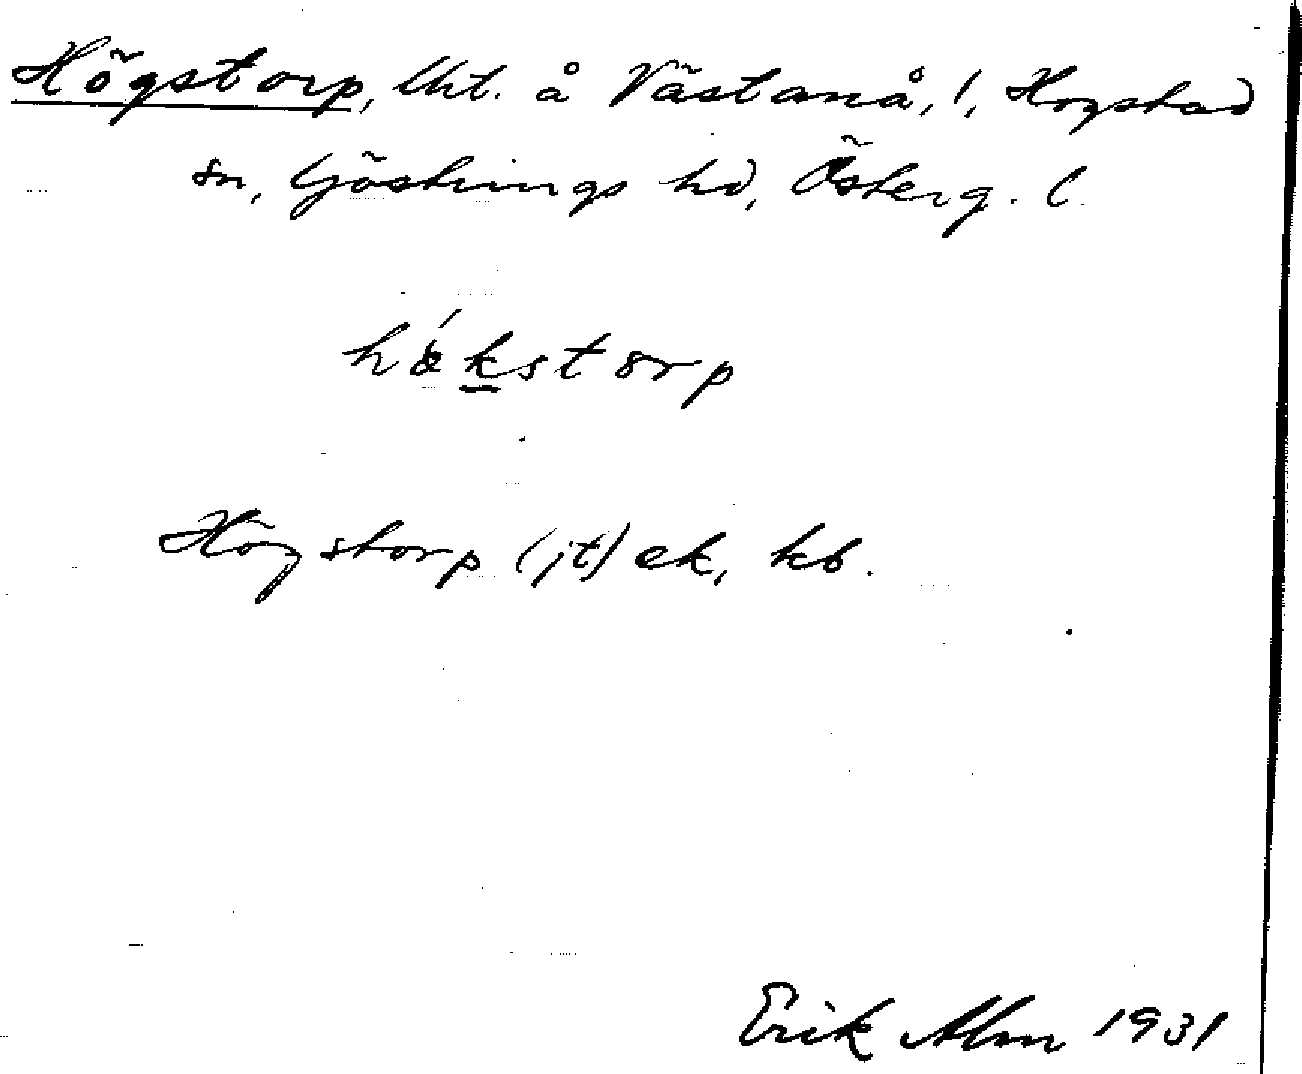 Högstorp, lht. å Västanå, 1, Hogstad
sn, Göstrings hd, Österg. l.
hǿkstorp
Högstorp (jt) ek, kb.
Erik Alm 1931